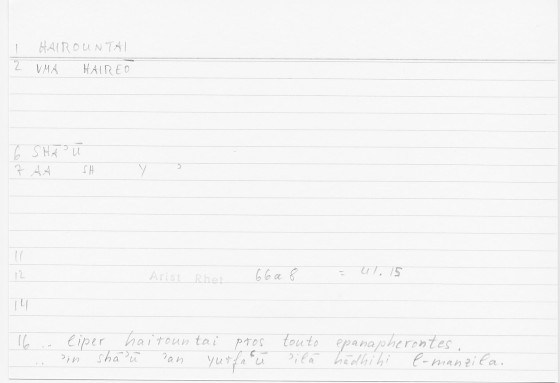 1 HAIROUNTAI
2 VHA HAIREŌ
6 SHĀʾŪ
7 AA SH Y ʾ
11
12 Arist Rhet 66a8 = 41.15
14
16 .. eiper hairountai pros touto epanapherontes.
.. ʾin shāʾū ʾan yurfaʿū ʾilā hādhihi l-manzila.